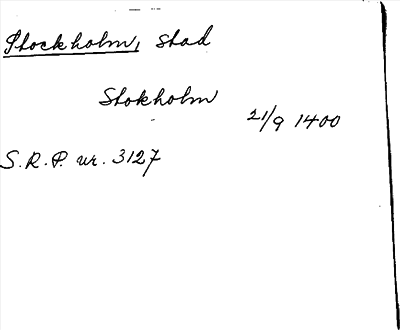 Stockholm, stad
Stokholm
21/9 1400
S.R.P. nr. 3127